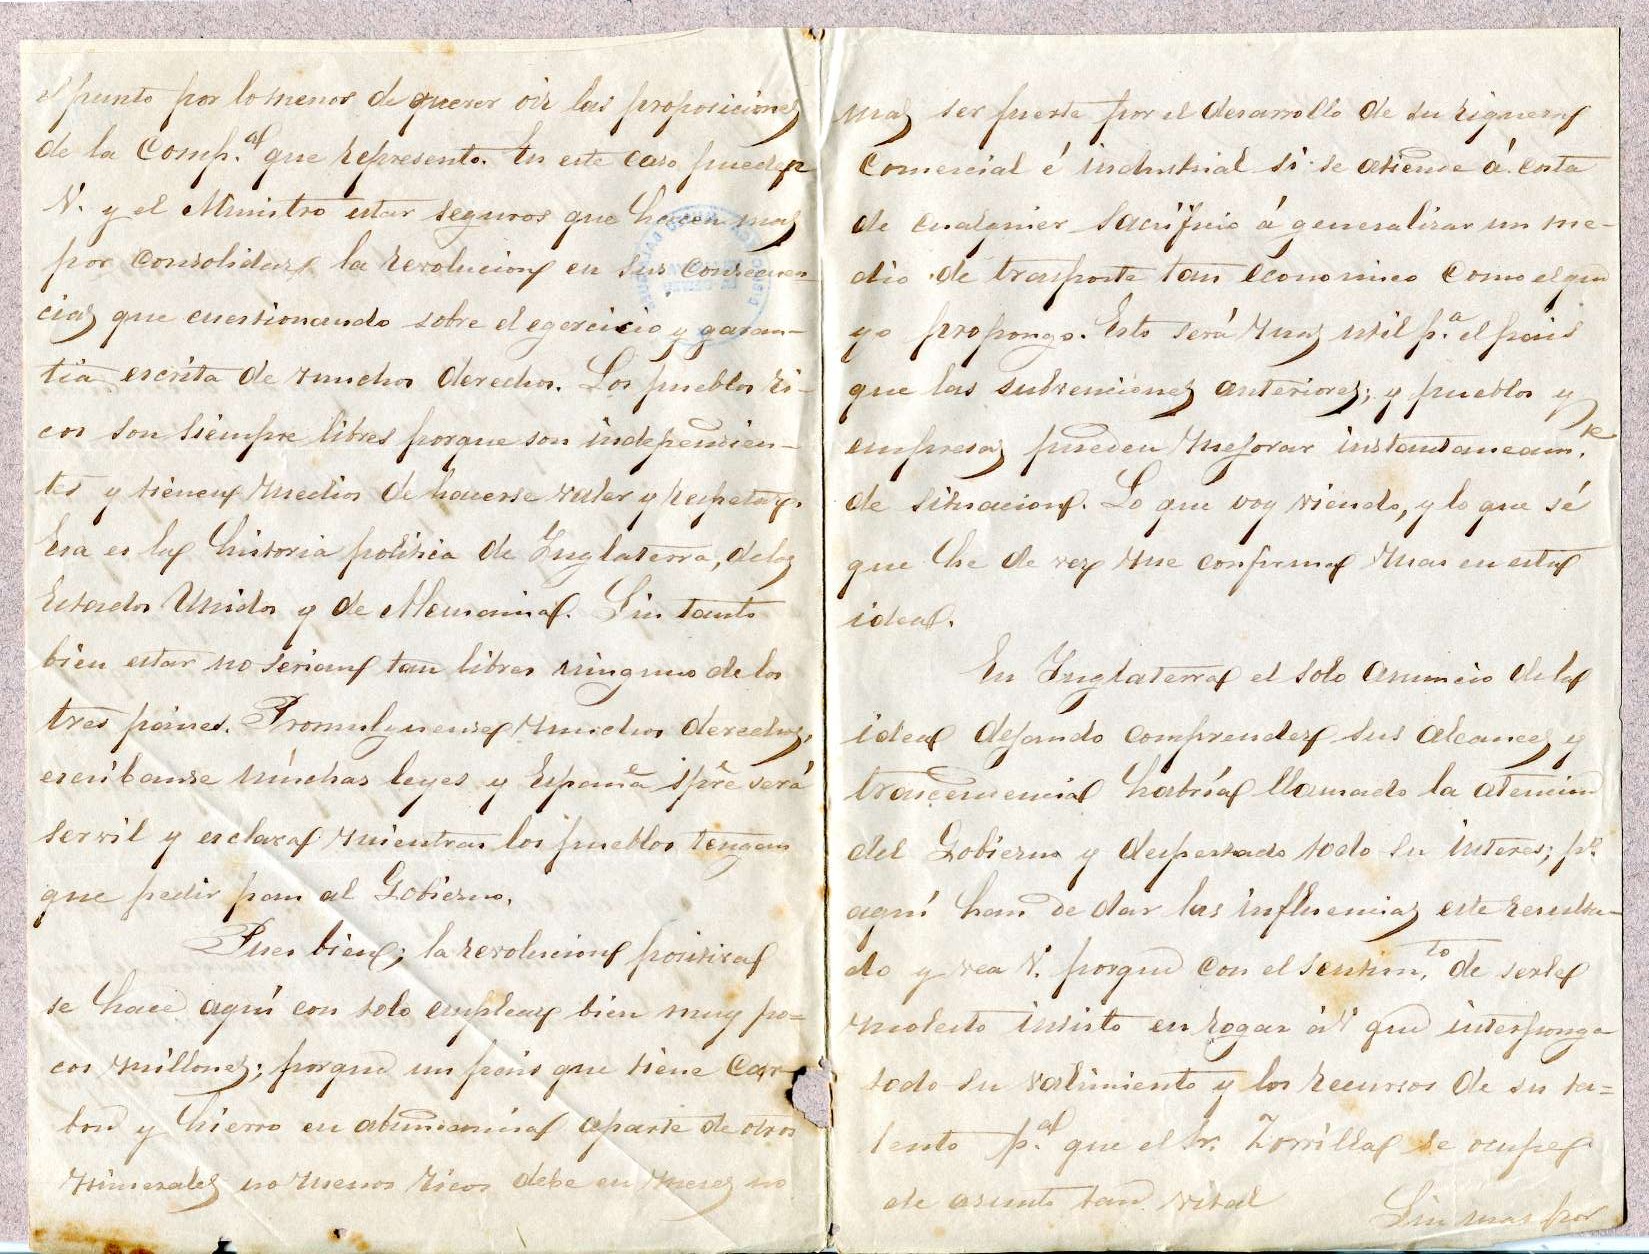 el punto por lo menos de querer oir las proposiciones
de la Comp.ª que represento. En este caso pueden
V. y el Ministro estar seguros que hacen mas
por consolidar la revolucion en sus consecuen-
cias que cuestionando sobre el egercicio y garan-
tia escrita de muchos derechos. Los pueblos ri-
cos son siempre libres porque son independien-
tes y tienen medios de hacerse valer y respetar.
Esa es la historia politica de Inglaterra, de los
Estados Unidos y de Alemania. Sin tanto
bien estar no serian tan libres ninguno de los
tres paises. Promulguense muchos derechos,
escribanse muchas leyes y España spre será
servil y esclava mientras los pueblos tengan
que pedir pan al Gobierno.
Pues bien; la revolucion positiva
se hace aqui con solo emplear bien muy po-
cos millones; porque un pais que tiene Car-
bon y hierro en abundancia aparte de otros
minerales no menos ricos debe en meses no
mas ser fuerte por el desarrollo de su riqueza
Comercial é industrial si se atiende á costa
de cualquier sacrificio á generalizar un me-
dio de trasporte tan economico como el que
yo propongo. Esto será mas util p.ª el pais
que las subvenciones anteriores; y pueblos y
empresas pueden mejorar instantaneam.te
de situacion. Lo que voy viendo, y lo que sé
que he de ver me confirma mas en esta
idea.
En Inglaterra el solo anuncio de la
idea dejando comprender sus alcances y
trascendencia habria llamado la atencion
del Gobierno y despertado todo su interes; pr
aqui han de dar las influencias este resulta-
do y vea V. porque con el sentim.to de serle
molesto insisto en rogar á V. que interponga
todo su valimiento y los recursos de su ta-
lento p.ª que el Sr. Zorrilla se ocupe
de asunto tan vital
Sin mas por